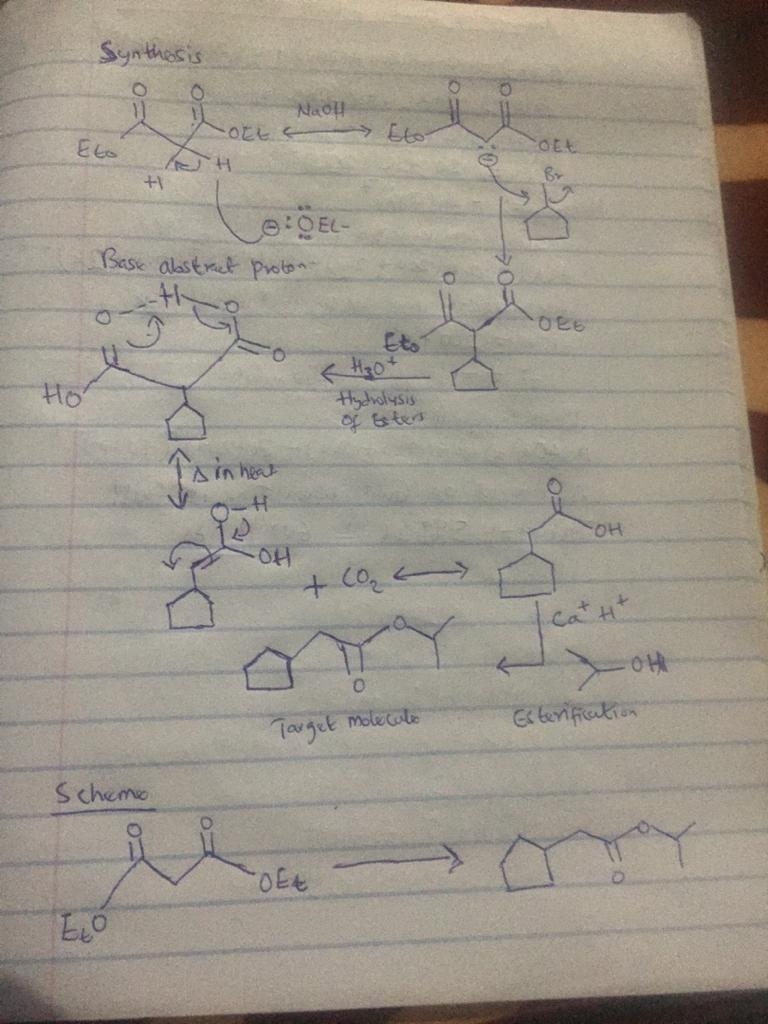 Synthesis
O O
EtO OEt NaOH EtO OEt
H H ⊖ Br
⊖:ÖEt
Base abstract proton
O H O O O
O EtO OEt
HO H3O+
Hydrolysis
of Esters
Δ in heat
O-H O
OH + CO2 OH
Ca+ H+
O OH
O
Target molecule Esterification
Scheme
O O O
OEt O
EtO